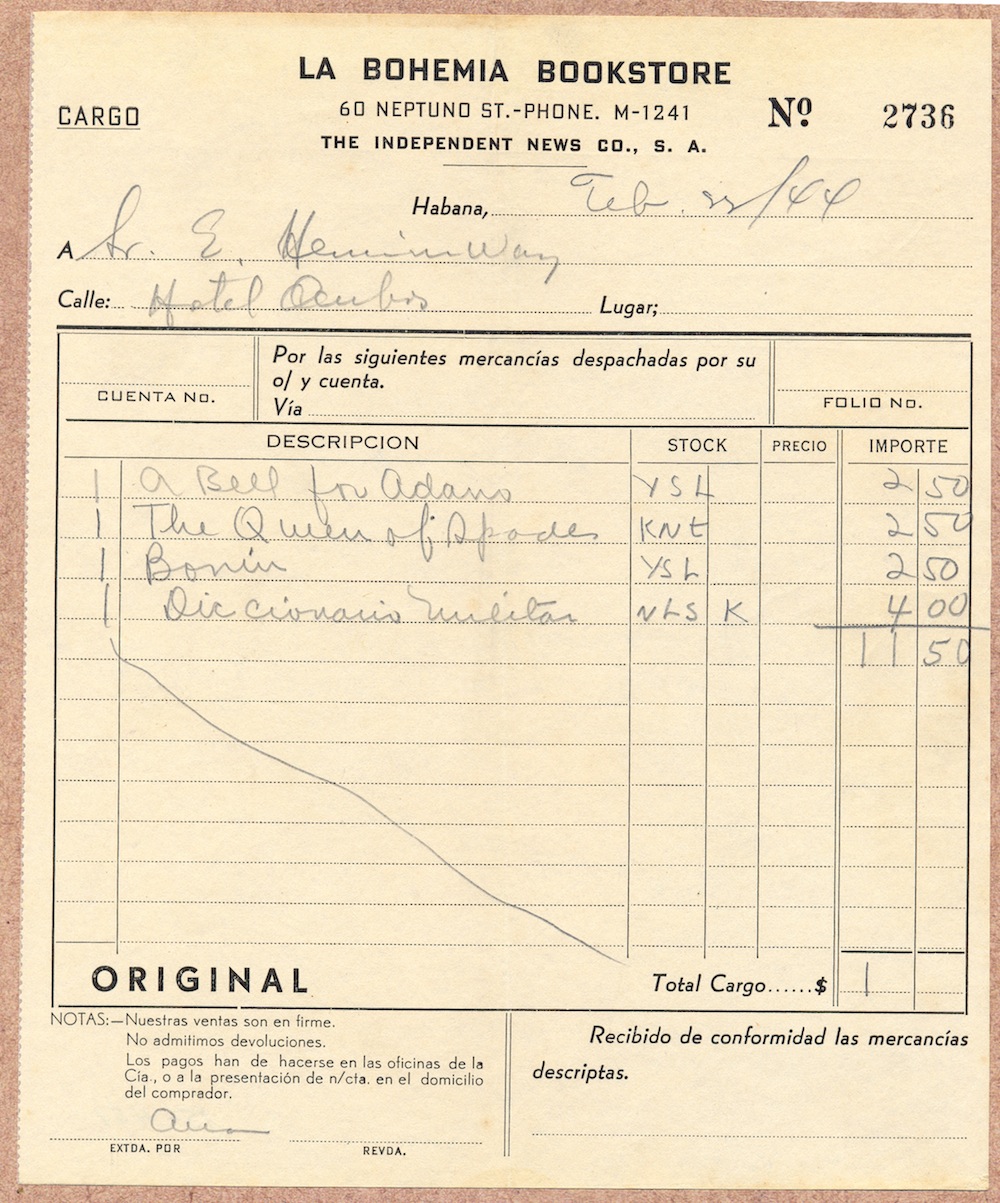 LA BOHEMIA BOOKSTORE
CARGO 60 NEPTUNO ST.-PHONE. M-1241 Nº 2736
THE INDEPENDENT NEWS CO., S. A.
Habana, Feb. 22/44
A Sr. E. HeminWay
Calle: Hotel Lugar;
Por las siguientes mercancías despachadas por su
o/ y cuenta.
CUENTA No. Vía FOLIO No.
DESCRIPCION STOCK PRECIO IMPORTE
1 A Bell for Adano YSL 2 50
1 The Queen of Spades KNE 2 50
1 Bonin YSL 2 50
1 Diccionario Militar NLS K 4 00
11 50
ORIGINAL Total Cargo......$ 1
NOTAS:—Nuestras ventas son en firme.
No admitimos devoluciones.
Los pagos han de hacerse en las oficinas de la
Cía., o a la presentación de n/cta. en el domicilio
del comprador.
EXTDA. POR REVDA.
Recibido de conformidad las mercancías
descriptas.